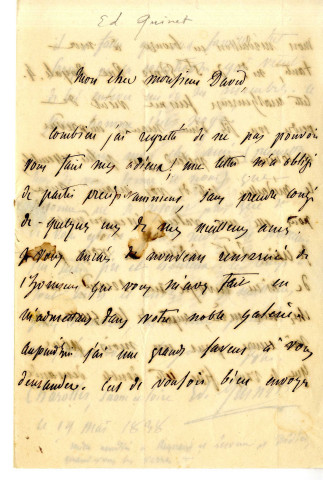 Ed Quinet
Mon cher monsieur David,
Combien j'ai regretté de ne pas pouvoir
vous faire mes adieux! une lettre m'a obligé
de partir précipitamment, sans prendre congé
de quelques uns de mes meilleurs amis.
Je vous aurais de nouveau remercié de
l'honneur que vous m'avez fait en
m'admettant dans votre noble galerie.
Aujourd'hui j'ai une grande faveur à vous
demander. C'est de vouloir bien envoyer
le 19 mai 1838